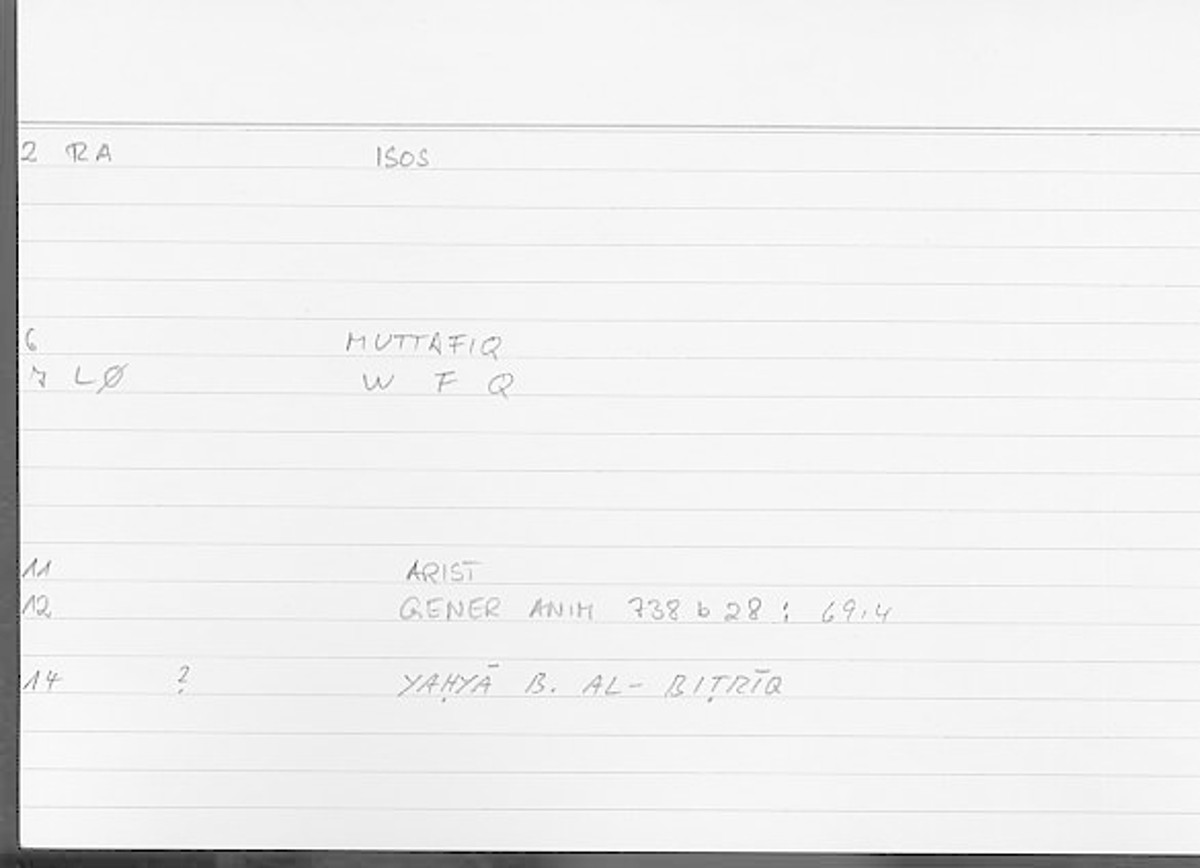 2 RA ISOS
6 MUTTAFIQ
7 LØ W F Q
11 ARIST
12 GENER ANIM 738 b 28 : 69,4
14 ? YAḤYĀ B. AL- BIṬRĪQ